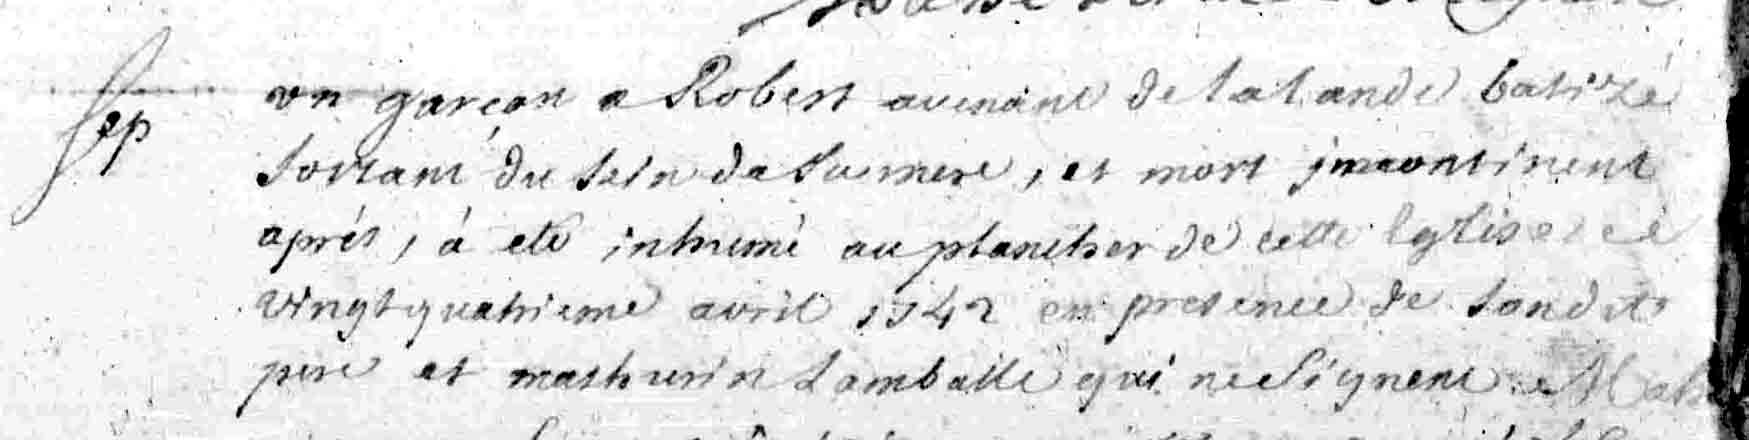 Sep
un garçon a Robert avenant de la lande batizé
sortant du sein de sa mere, et mort jncontinent
aprés, à eté inhumé au plancher de cette Eglise ce
vingt quatrieme avril 1742 en presence de son dit
pere et mathurin Lamballe qui ne signent